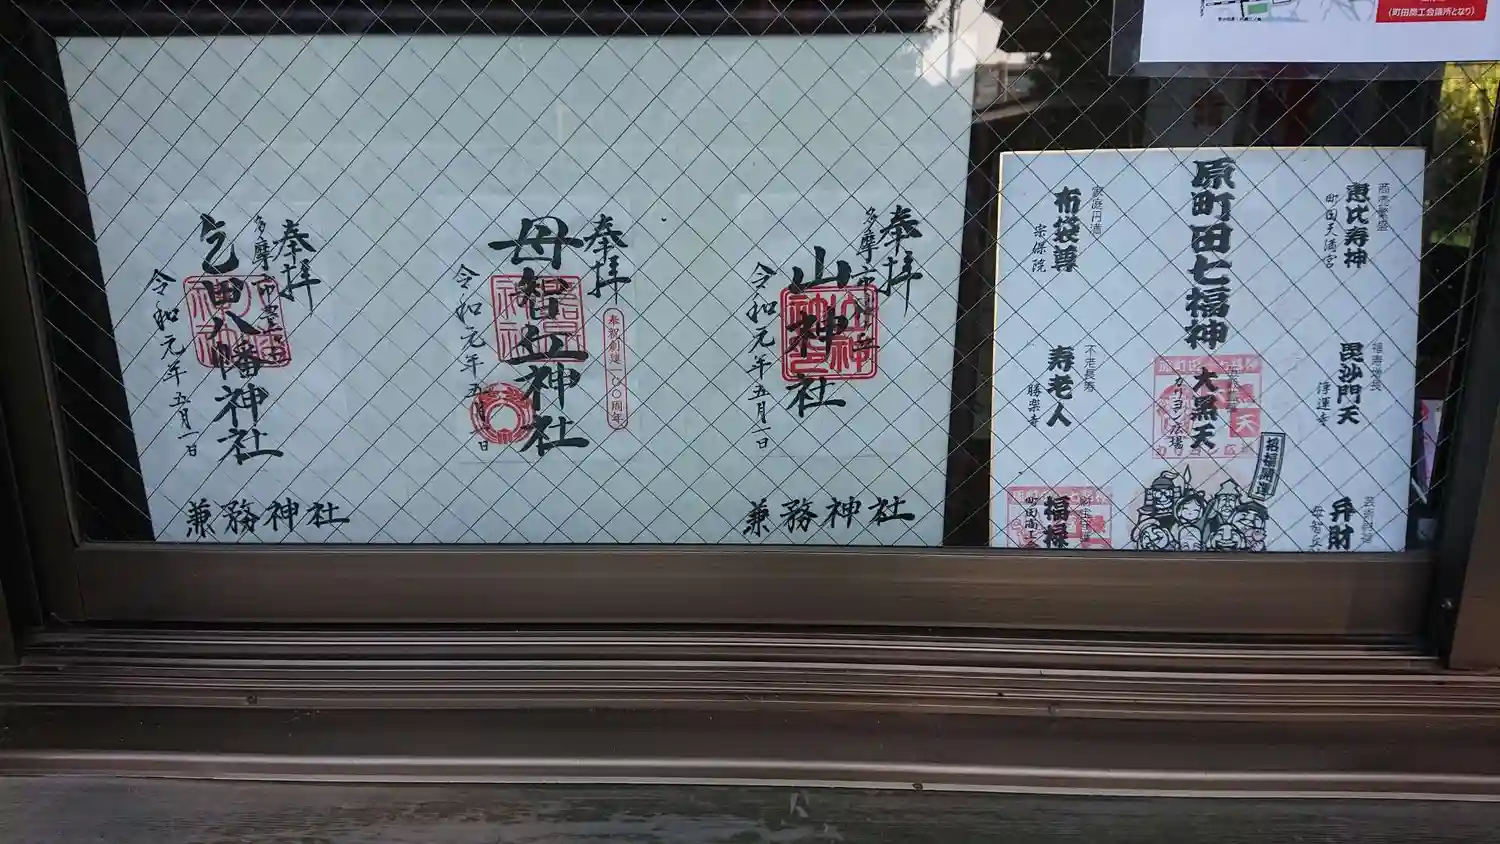 (町田商工会議所となり)
奉拝
多摩市
山神社
令和元年五月一日
兼務神社
奉拝
母智丘神社
奉祝創建一〇〇周年
令和元年五月一日
奉拝
多摩市
乞田八幡神社
令和元年五月一日
兼務神社
商売繁盛
恵比寿神
町田天満宮
福寿増長
毘沙門天
浄運寺
弁財
原町田七福神
大黒天
カリヨン広場
招福開運
家庭円満
布袋尊
宗保院
不老長寿
寿老人
勝楽寺
福禄
町田商工